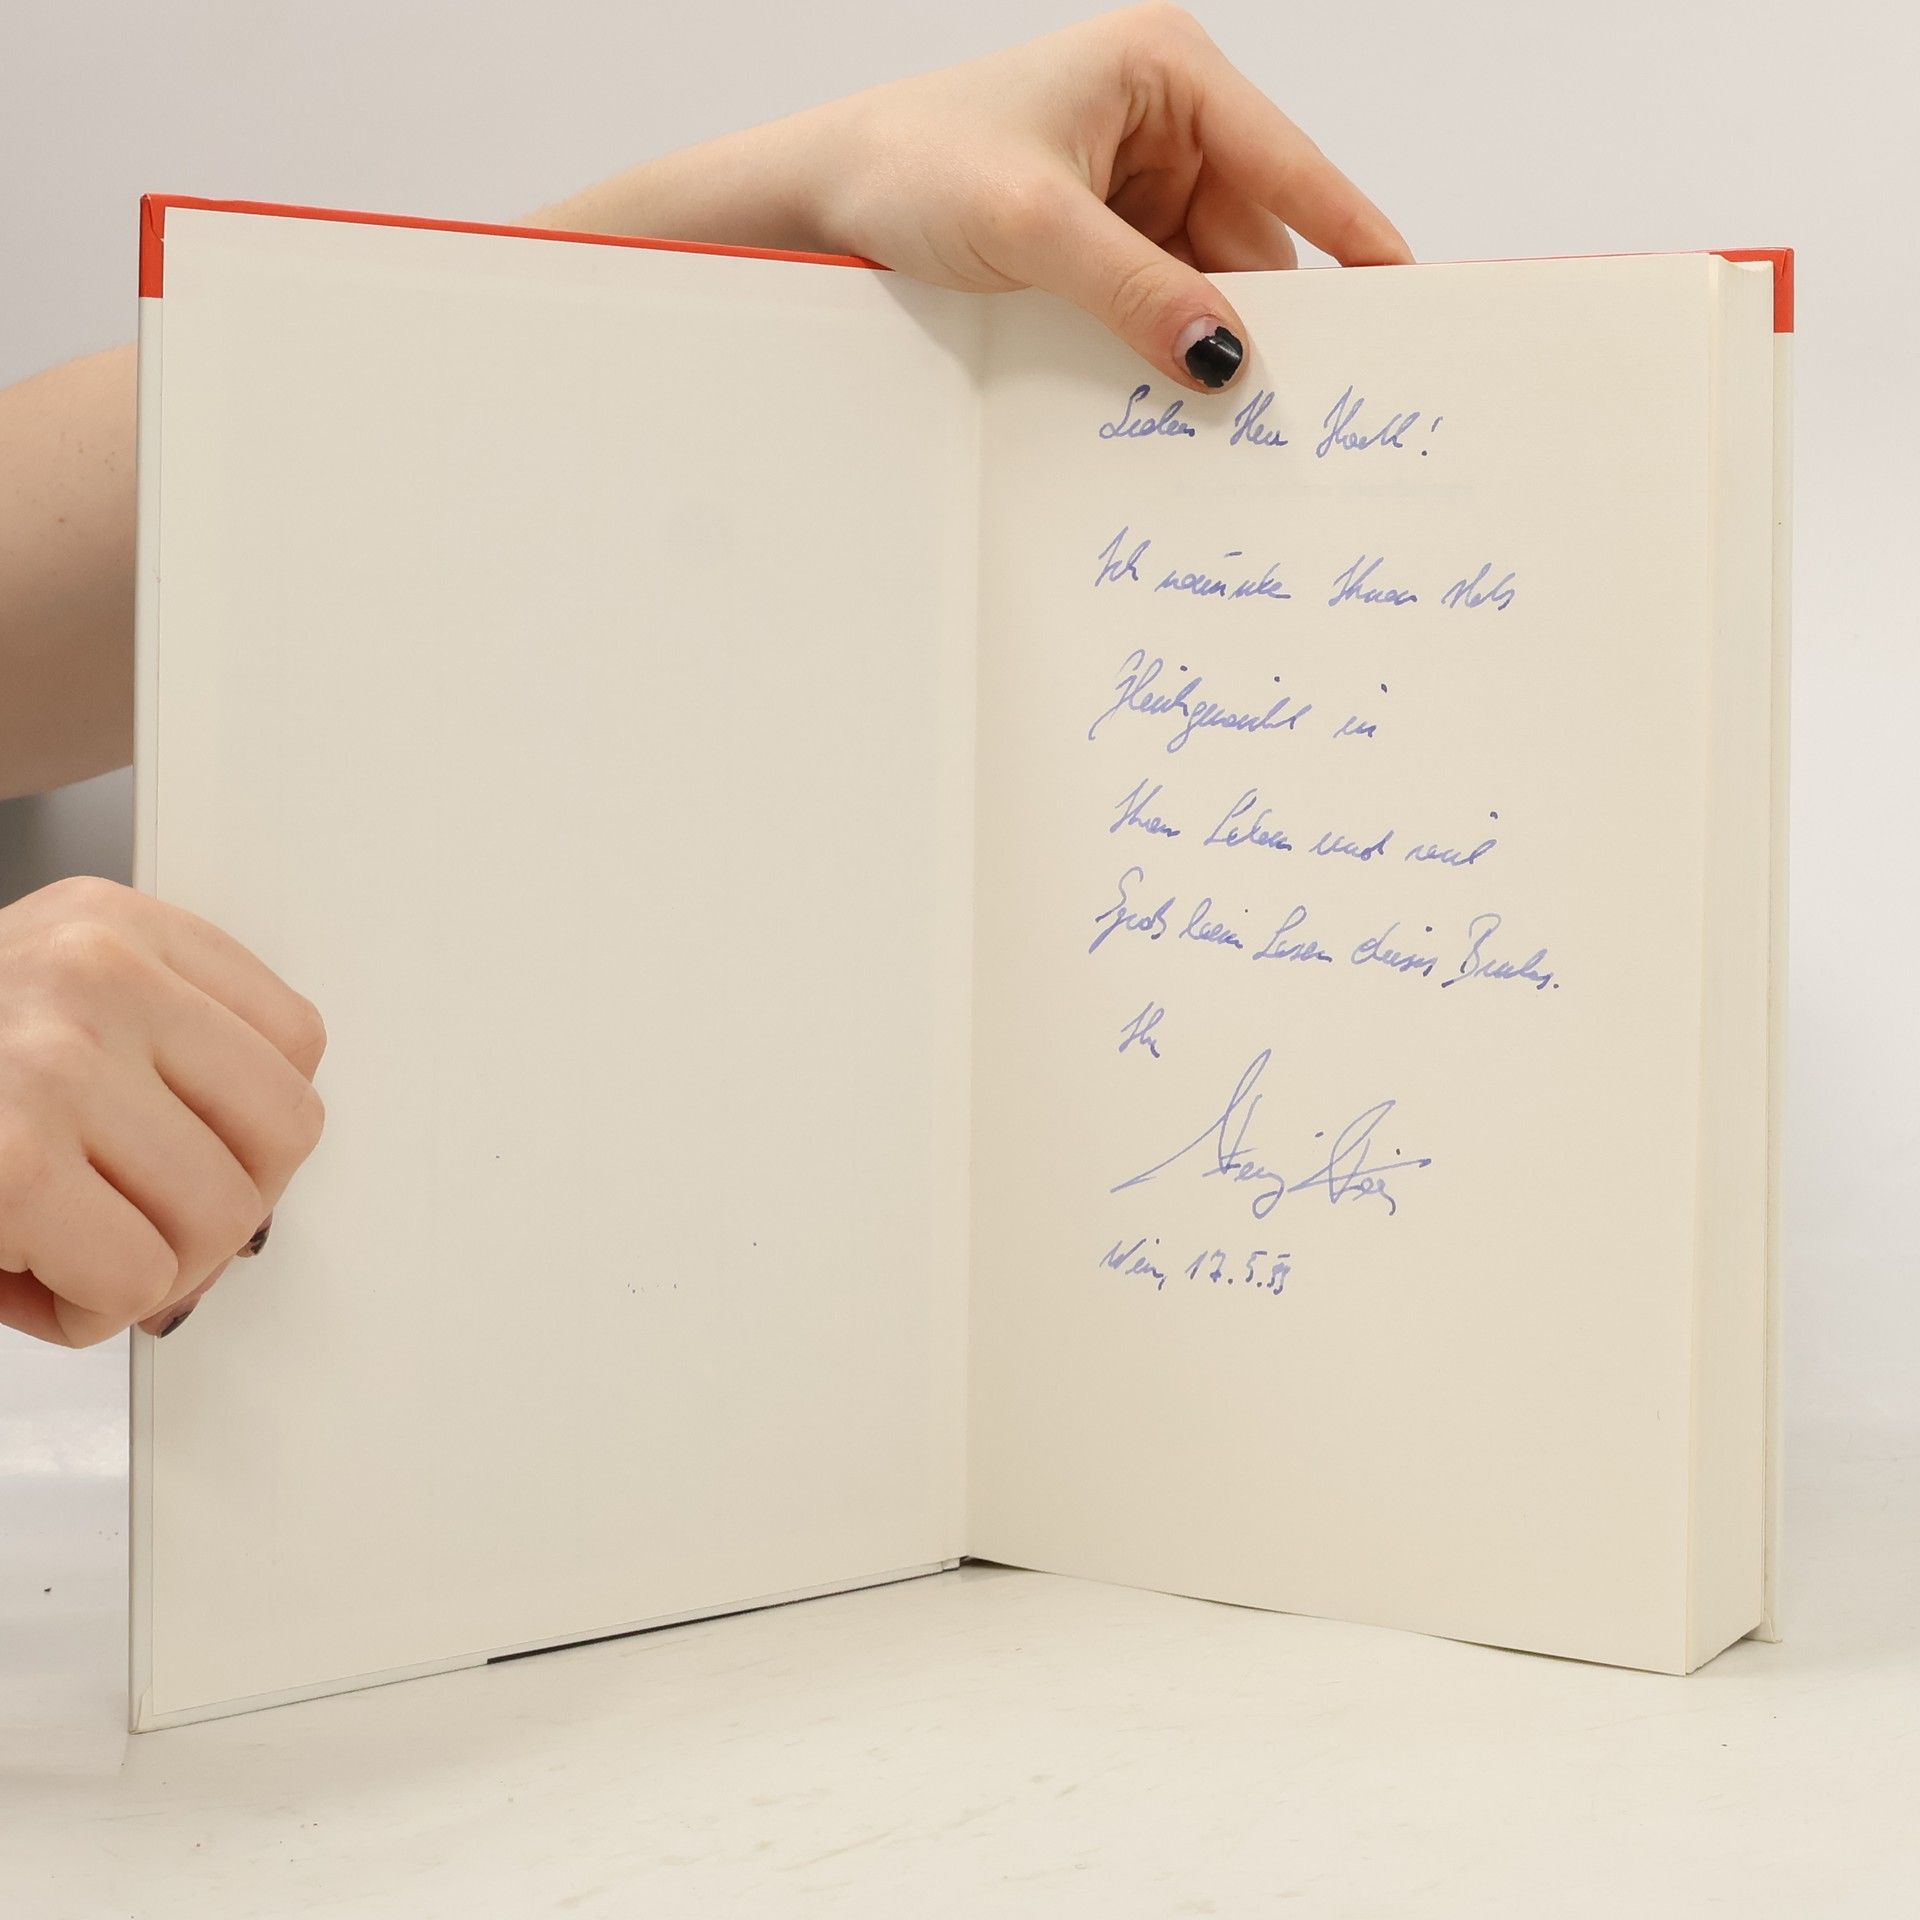 Lieber Herr
Ich wünsche Ihnen stets
Gleichgewicht in
Ihrem Leben und viel
Spaß beim Lesen dieses Buches.
Ihr
Wien, 17.5.99